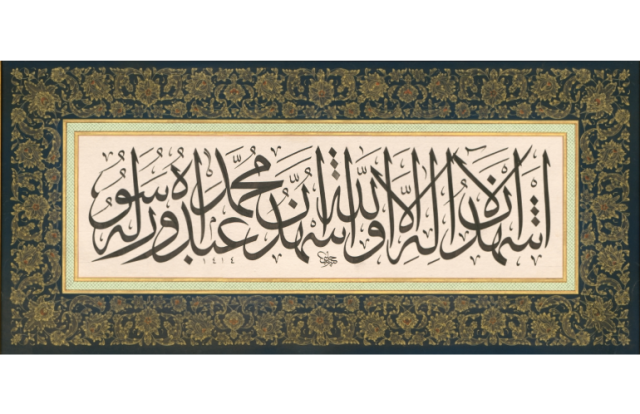 اشهد ان لا اله الّا اللّه و اشهد انّ محمّدا عبده و رسوله
١٤١٤